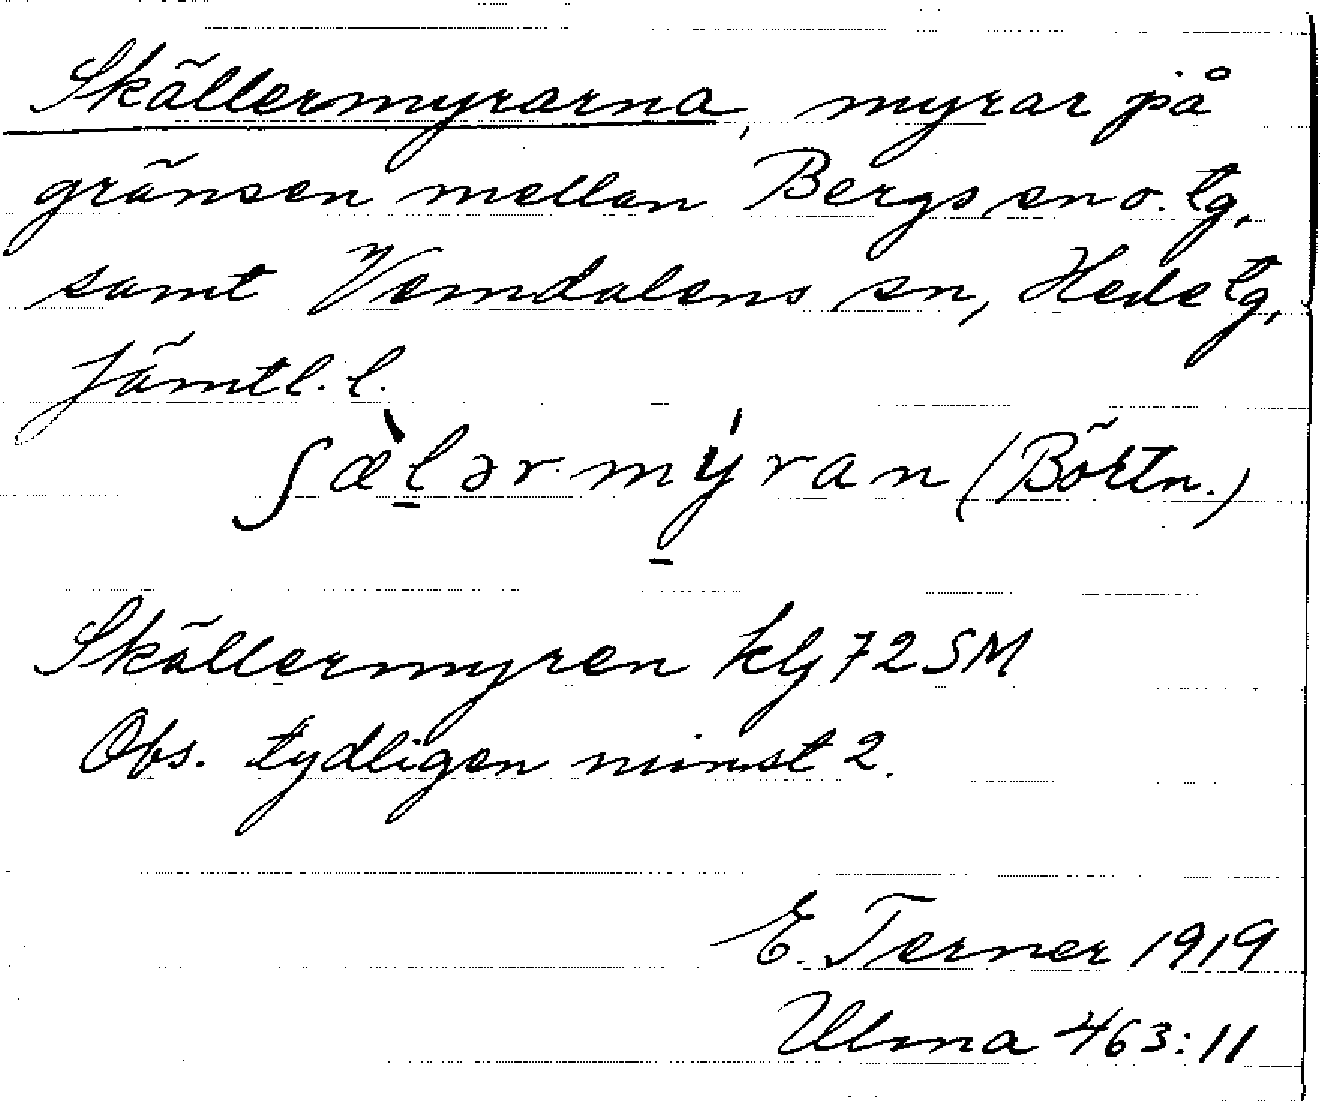 Skällermyrarna, myrar på
gränsen mellan Bergs sn o. tg,
samt Vemdalens sn, Hede tg,
Jämtl. l.
ʃæ̀lər mýran (Börtn.)
Skällermyren kbl 72 SM
Obs. tydligen minst 2.
E. Terner 1919
Ulma 463:11